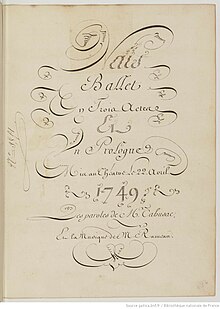 Naïs
Ballet
En Trois Actes
Et
Un Prologue
Mis au Theatre le 22 Avril
1749
Les paroles de M. Cahusac,
Et la Musique de M. Rameau
Source gallica.bnf.fr / Bibliothèque nationale de France